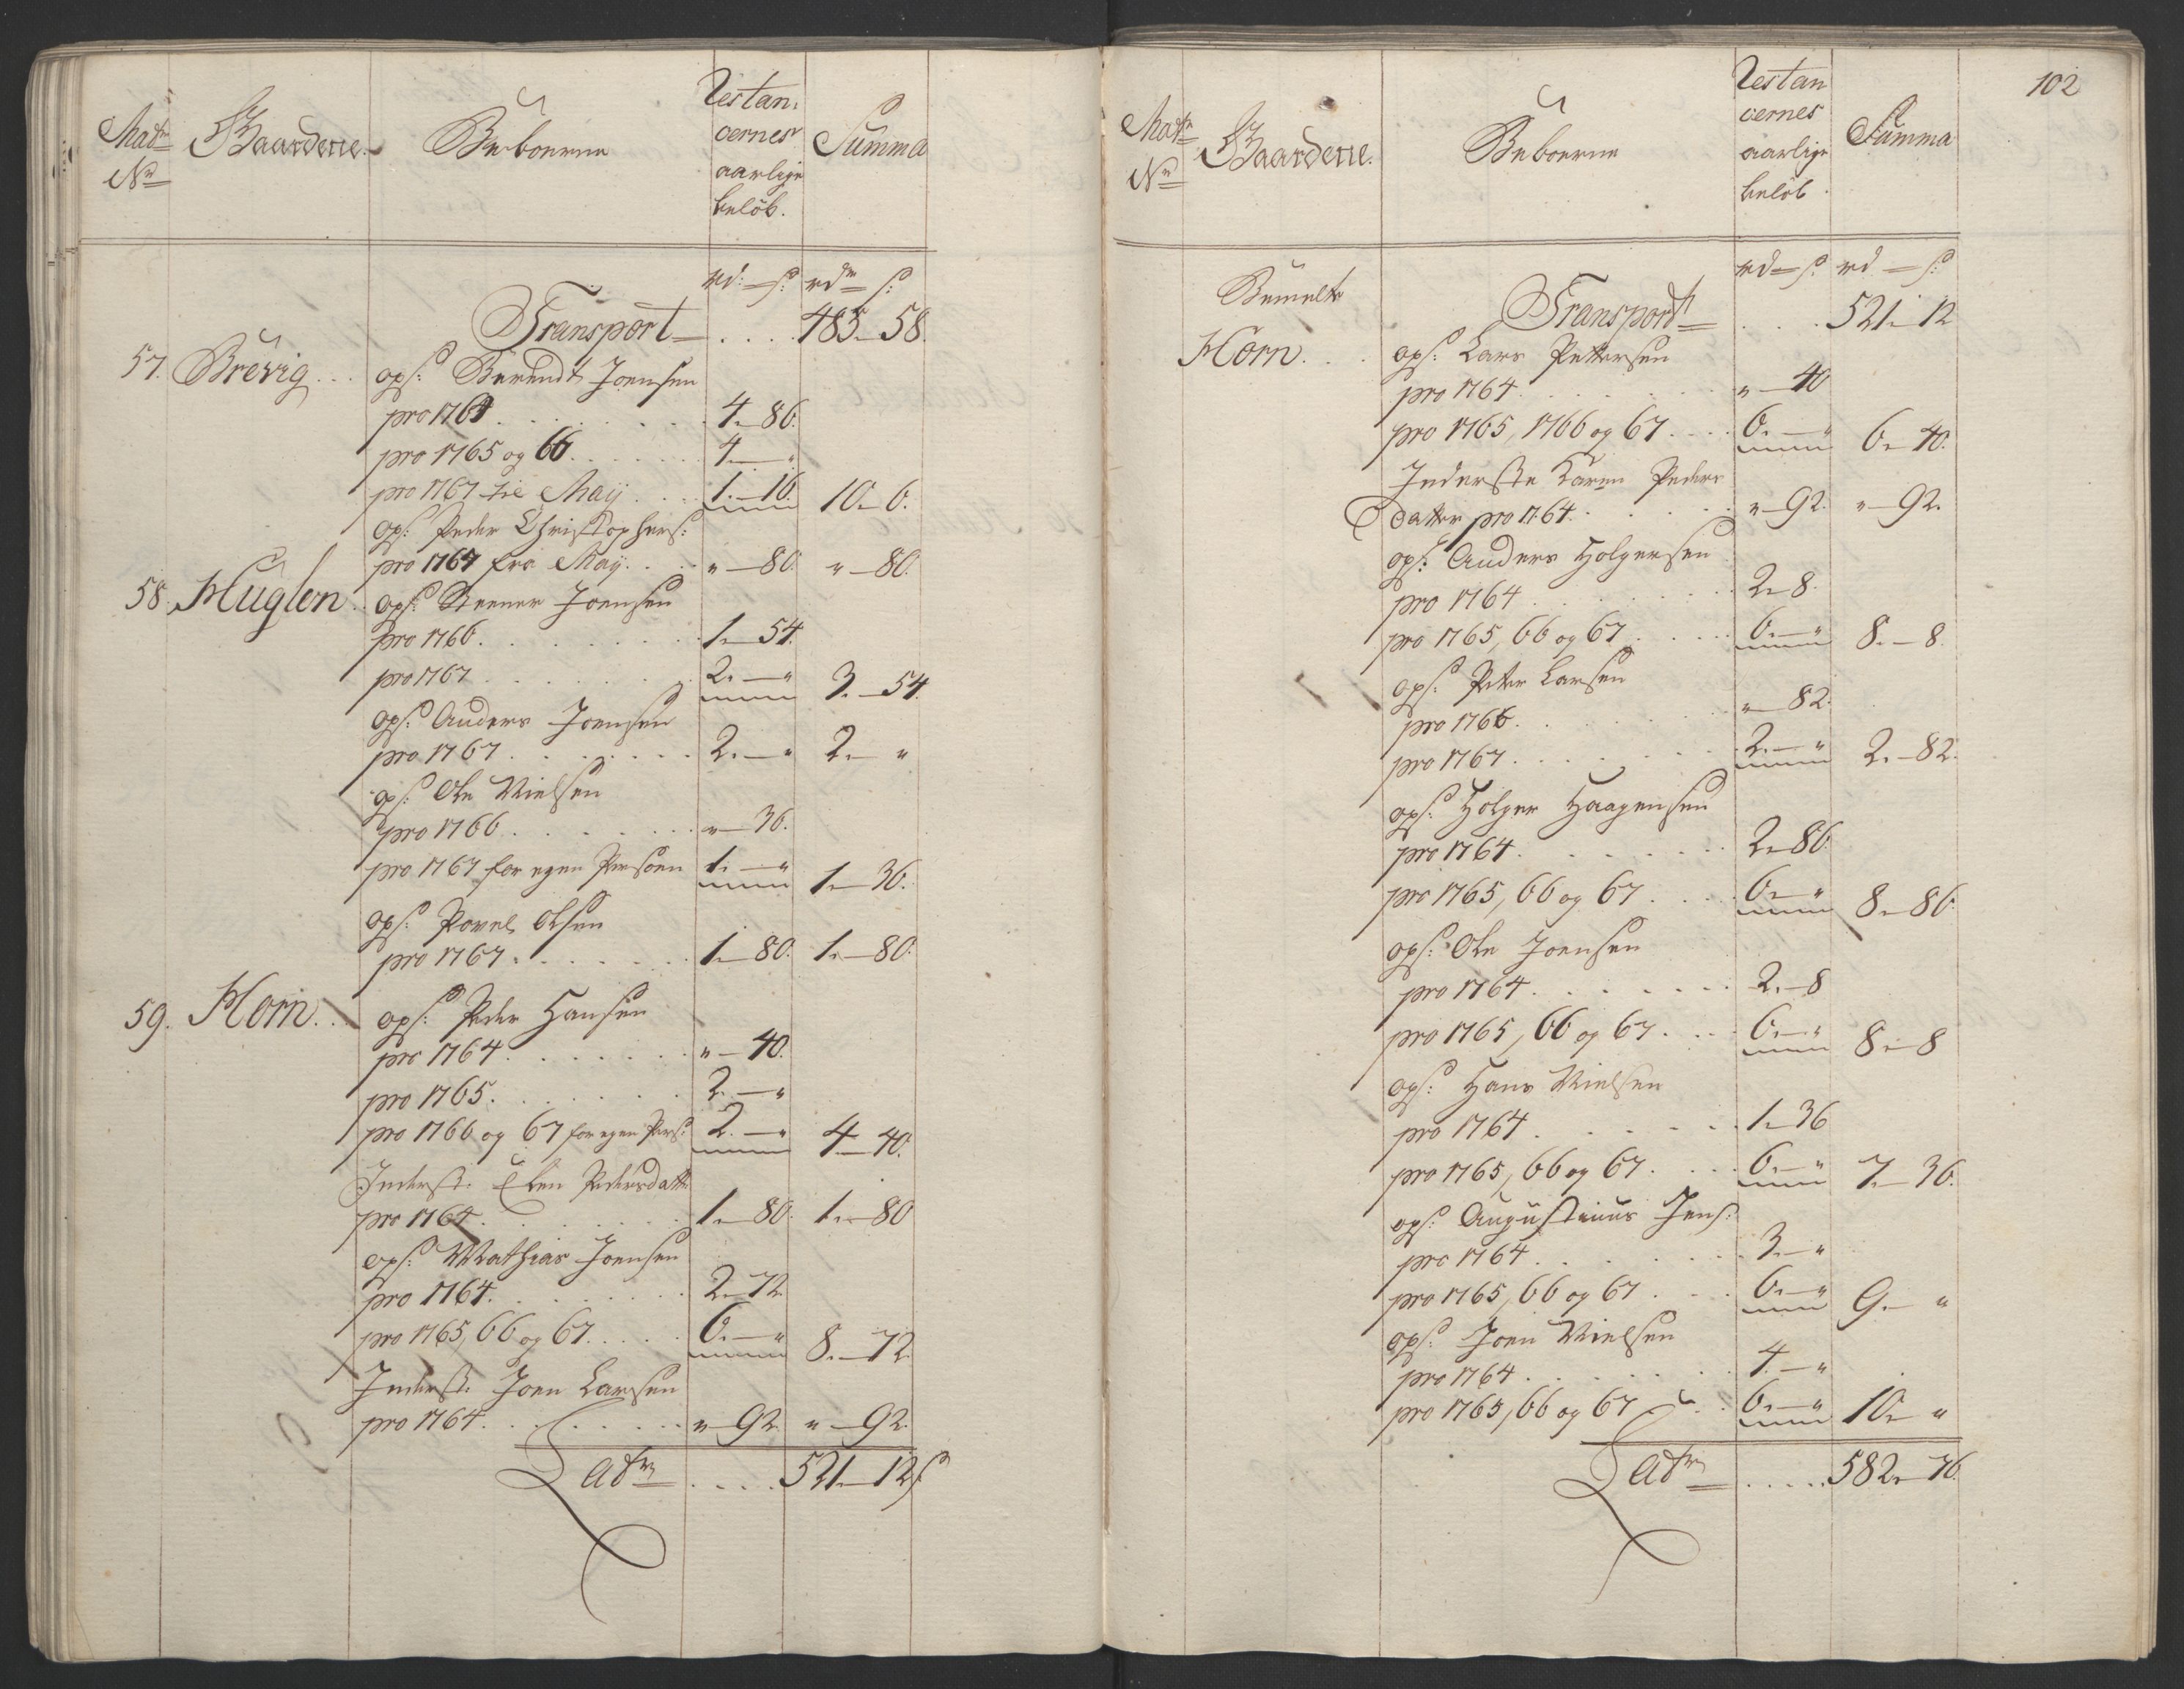 Matr Gaardene. Beboerne Restan:
No cernes Summa
aarlige
beløb.
rd: — s: rdr — s:
Transport . . . . 485 — 58.
57. Brevig . . . ops: Berendt Joensen
pro 1764 . . . . . . . 4. — 86.
pro 1765 og 66 . . . . . . 4. — "
pro 1767 til Maÿ . . . . 1. — 16. 10. — 6.
ops: Peder Christophers:
pro 1767 fra Maÿ . . . " — 80. " — 80.
58. Huglen . ops: Steener Joensen
pro 1766 . . . . . . . . 1. — 54.
pro 1767 . . . . . . . 2. — " 3. — 54
ops: Anders Joensen
pro 1767 . . . . . . . 2. — " 2. — "
ops: Ole Nielsen
pro 1766 . . . . . . . " — 36.
pro 1767 for egen Persoen 1. — " 1. — 36.
ops: Povel Olsen
pro 1767 . . . . . . . 1. — 80. 1. — 80.
59. Horn . . ops: Peder Hansen
pro 1764 . . . . . . . " — 40.
pro 1765 . . . . . . . 2. — "
pro 1766 og 67 for egen Pers: 2. — " 4. — 40.
Inderst. Elen Pedersdattr
pro 1764 . . . . . . . 1. — 80. 1. — 80
ops: Mathias Joensen
pro 1764 . . . . . . . 2. — 72.
pro 1765, 66 og 67 . . . . . 6. — " 8. — 72.
Inderst. Joen Larsen
pro 1764 . . . . . . . " — 92. " — 92.
Latr . . . . 521. — 12 s
102
Matr Gaardene. Beboerne Restan
No cernes Summa
aarlige
beløb.
rd — s: rd — s:
Bemelte Transport . . . . 521. — 12
Horn . . . ops: Lars Pettersen
pro 1764 . . . . . . " — 40
pro 1765, 1766 og 67 . . . . 6. — " 6. — 40.
Inderste Karen Peders
datter pro 1764 . . . . . " — 92. " — 92.
ops: Anders Holgersen
pro 1764 . . . . . . . . 2. — 8.
pro 1765, 66 og 67 . . . . . 6. — " 8. — 8.
ops: Peter Larsen
pro 1766 . . . . . . . " — 82.
pro 1767 . . . . . . . 2. — " 2. — 82.
ops: Holger Haagensen
pro 1764 . . . . . . . 2. — 86.
pro 1765, 66 og 67 . . . . 6. — " 8. — 86.
ops: Ole Joensen
pro 1764 . . . . . . . 2. — 8
pro 1765, 66 og 67 . . . . 6. — " 8. — 8
ops: Hans Nielsen
pro 1764 . . . . . . 1. — 36
pro 1765, 66 og 67 . . . . 6. — " 7. — 36.
ops: Augustinus Jens:
pro 1764 . . . . . . . 3. — "
pro 1765, 66 og 67 . . . . 6. — " 9. — "
ops: Joen Nielsen
pro 1764 . . . . . . . 4. — "
pro 1765, 66 og 67 . . . 6. — " 10. — "
Latr . . . . . 582. — 76.